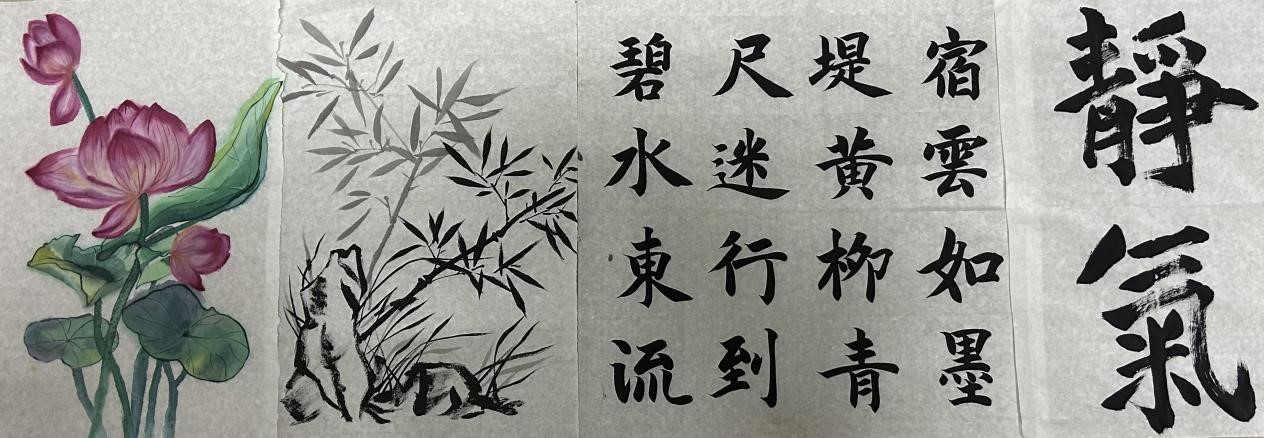 靜氣
宿雲如墨
堤黄柳青
尺迷行到
碧水東流